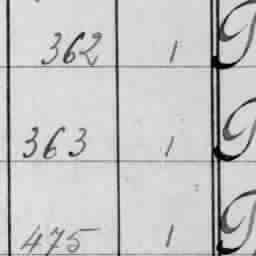 362 1 P
363 1 P
475 1 P